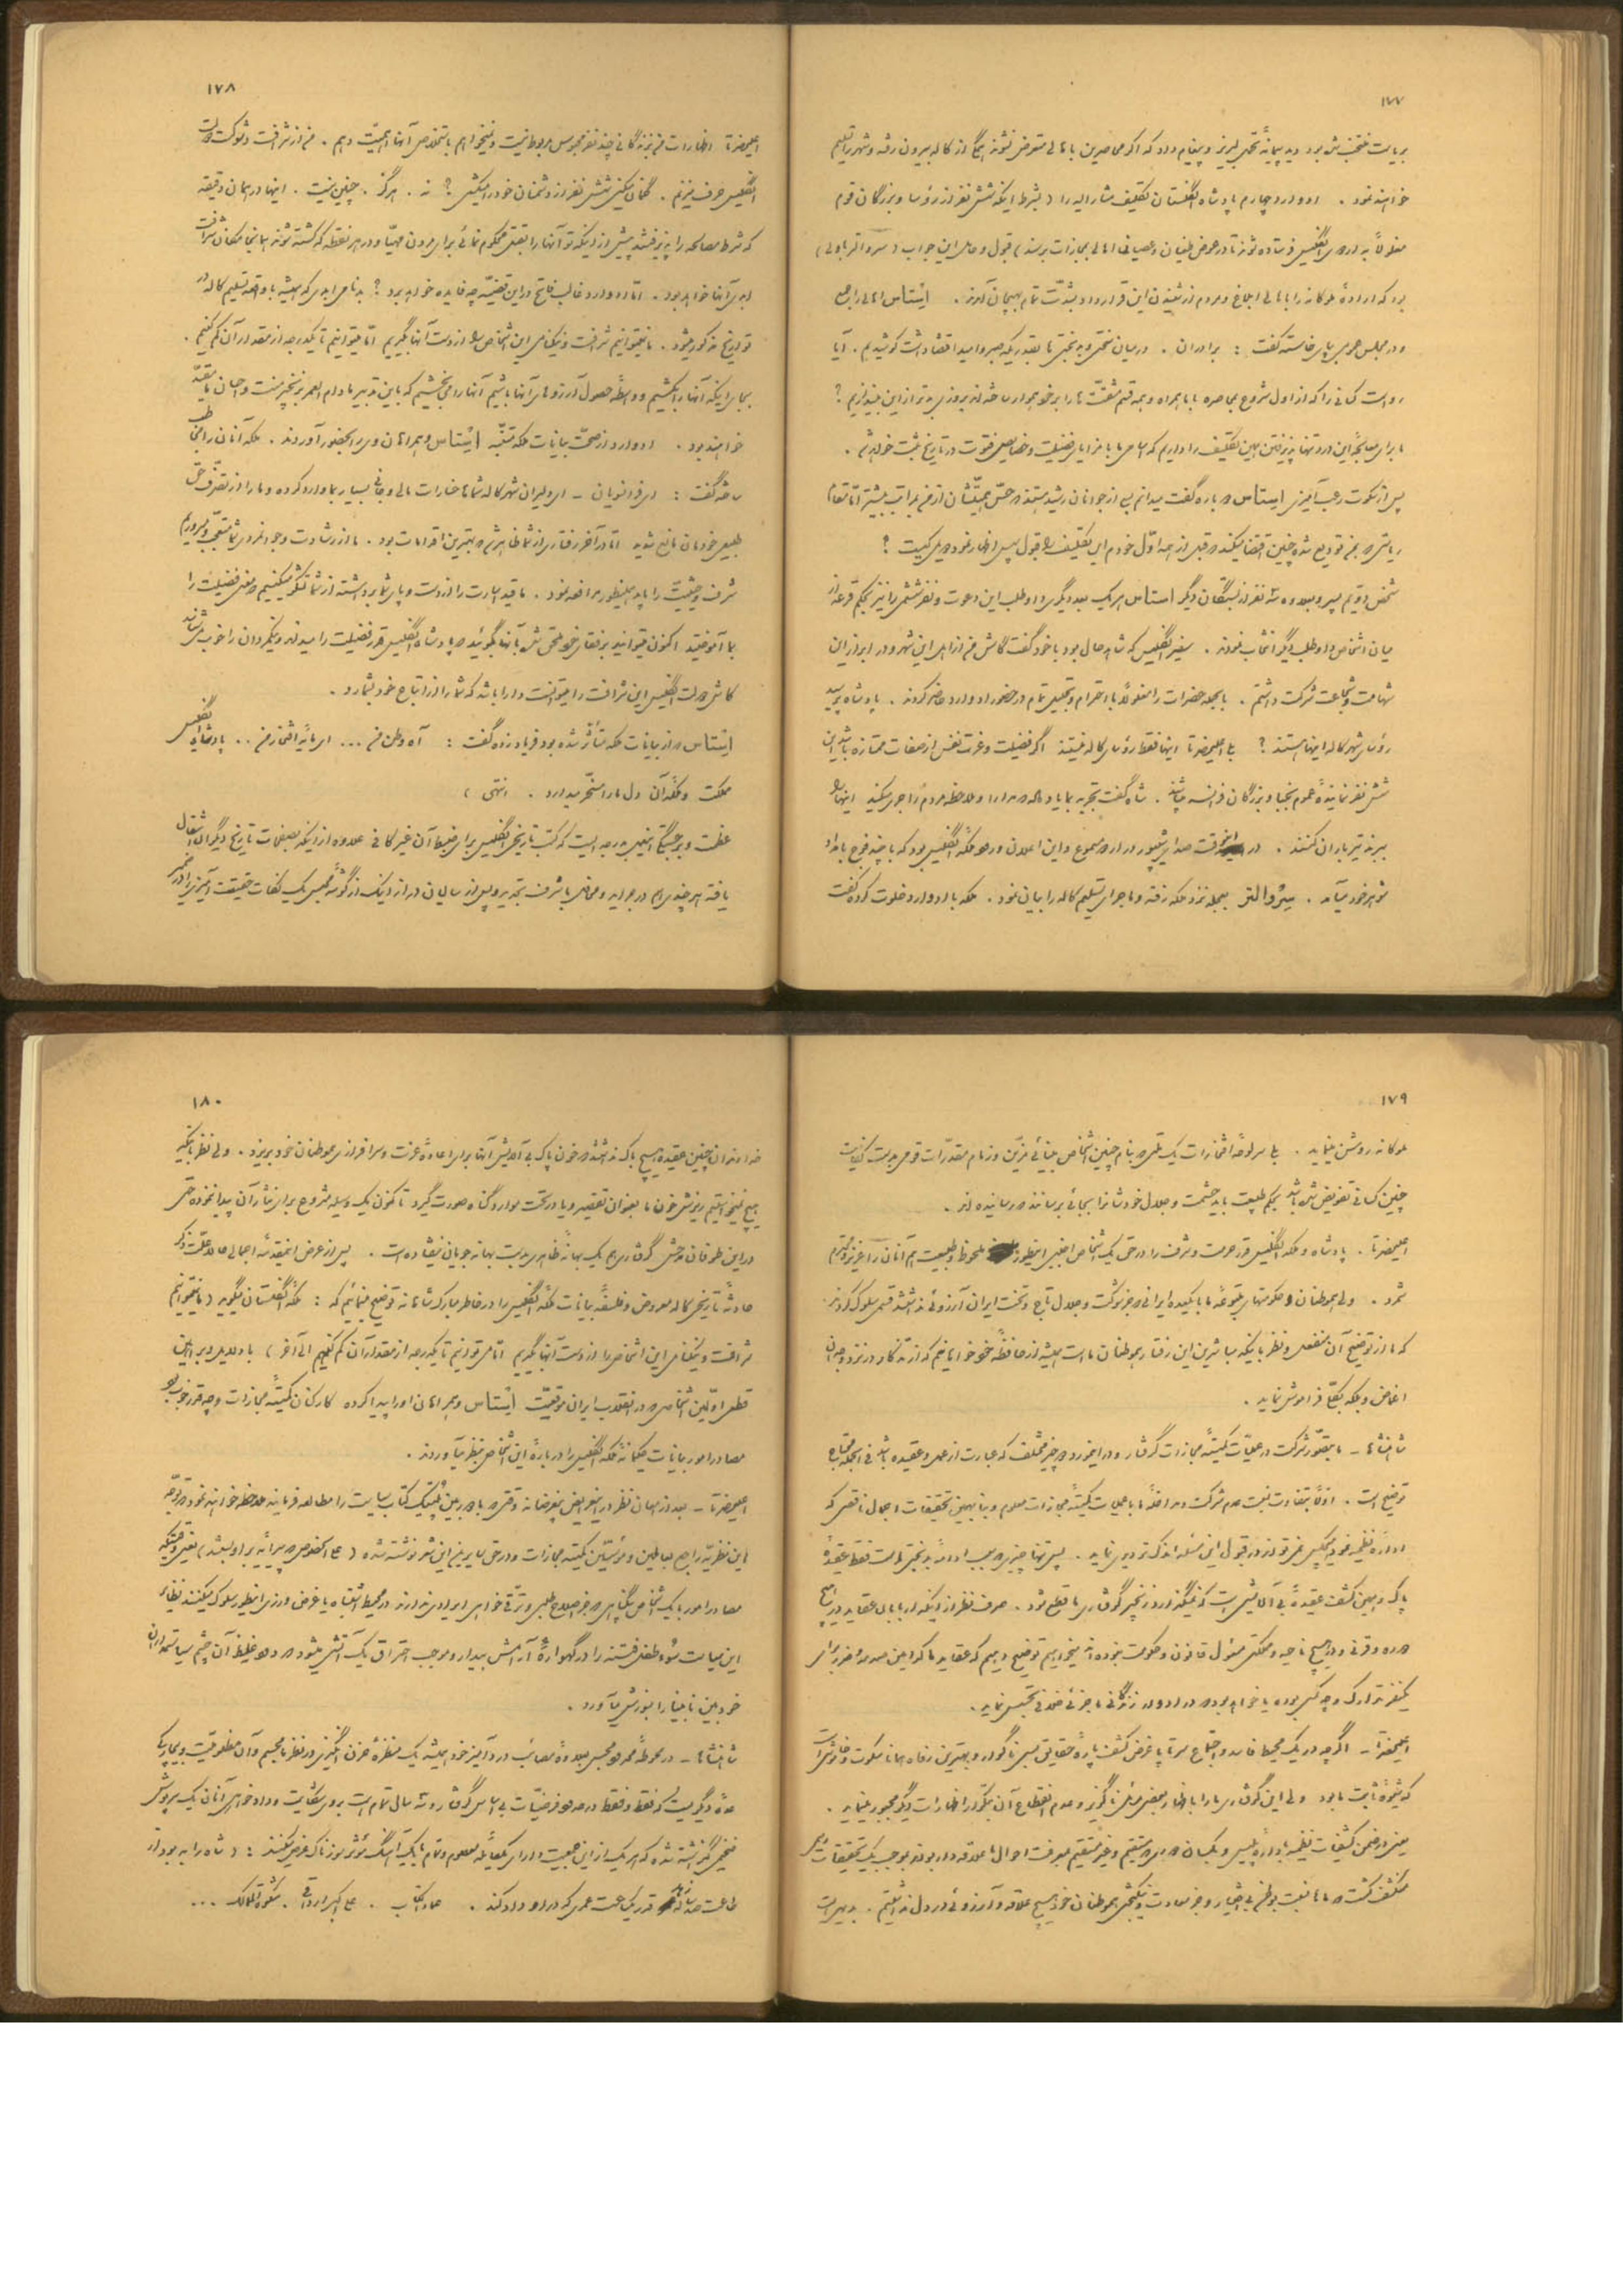 ۱۷۷
بریاست منتخب شده بود دید پیمانهٔ تحمل لبریز و پیغام داد که اگر محاصرین باهالی متعرض نشوند همگی از کاله بیرون رفته و شهر را تسلیم
خواهند نمود . ادوارد چهارم پادشاه انگلستان تکلیف مشارالیه را ( بشرط اینکه شش نفر از رؤسا و بزرگان قوم
مغلولاً به اردوی انگلیس فرستاده شوند تا در عوض طغیان و عصیان اهالی بمجازات برسند ) قبول و حامل این جواب ( سر والتر ماولی )
بود که ارادهٔ ملوکانه را باهالی ابلاغ و مردم از شنیدن این قرارداد بشدّت تمام بهیجان آمدند . ایستاس اهالی را جمع
و در مجلس عمومی بپای خاسته گفت : برادران . در میان سختی و بدبختی تا بقدریکه صبر و امید اقتضا داشت کوشیدیم . آیا
رواست کسانی را که از اول شروع بمحاصره با ما همراه و همه قسم مشقت ما را بر خود هموار ساخته‌اند بروزی بدتر از این بیندازیم ؟
ما برای معالجهٔ این درد تنها پذیرفتن همین تکلیف را داریم که اسامی ما با مزایای فضیلت و خصایص فتوت در تاریخ ثبت خواهد شد .
پس از سکوت رعب‌آمیزی ایستاس دوباره گفت میدانم بسی از جوانان رشید هستند که حسّ حمیتشان از من بمراتب بیشتر امّا مقام
ریاستی که بمن تودیع شده چنین اقتضا میکند که قبل از همه اوّل خودم این تکلیف را قبول پس اظهار نمود دومی کیست ؟
شخص دوّیم پسر و بعلاوه سه نفر از بستگان دیگر ایستاس هر یک بعد دیگری داوطلب این دعوت و نفر ششمی را نیز بحکم قرعه از
میان اشخاص داوطلب دیگر انتخاب نمودند . سفیر انگلیس که شاهد حال بود با خود گفت کاش من از اهل این شهر و در ابراز این
شهامت و شجاعت شرکت داشتم . بالجمله حضرات را مغلولاً با احترام و تجلیل تمام در حضور ادوارد حاضر کردند . پادشاه پرسید
رؤسای شهر کاله اینها هستند ؟ بلی اعلیحضرتا اینها فقط رؤسای کاله نیستند اگر فضیلت و عزت نفس از صفات ممتازه باشد این
شش نفر نمایندهٔ عموم نجبا و بزرگان فرانسه میباشند . شاه گفت تجربه بما یاد داده که مدارا و ملاحظه مردم را جری میکند اینها را
ببرند تیر باران کنند . در این وقت صدای شیپور در اردو مسموع و این اعلان ورود ملکهٔ انگلیس بود که با چند فوج بامداد
شوهر خود میآمد . سر والتر بعجله نزد ملکه رفته و ماجرای تسلیم کاله را بیان نمود . ملکه با ادوارد خلوت کرده گفت
۱۷۸
اعلیحضرتا اظهارات من بزندگانی چند نفر محبوس مربوط نیست و نمیخواهم باستخلاص آنها اهمیّت دهم . من از شرافت و شوکت دولت
انگلیس حرف میزنم . گمان میکنی شش نفر از دشمنان خود را میکشی ؟ نه . هرگز . چنین نیست . اینها در همان دقیقه
که شرط مصالحه را پذیرفتند پیش از اینکه تو آنها را بقتل محکوم نمائی برای مردن مهیّا و در هر نقطه که کشته شوند همانجا مکان شرافت
ابدی آنها خواهد بود . امّا ادوارد غالب فاتح در این قضیّه چه فایده خواهد برد ؟ بدنامی ابدی که همیشه با واقعهٔ تسلیم کاله در
تواریخ مذکور میشود . ما نمیتوانیم شرافت و نیکنامی این اشخاص را از دست آنها بگیریم امّا میتوانیم تا یکدرجه از مقدار آن کم کنیم .
بجای اینکه آنها را بکشیم و واسطهٔ حصول آرزوهای آنها باشیم آنها را می‌بخشیم که باین تدبیر مادام العمر بزنجیر منت و احسان ما مقیّد
خواهند بود . ادوارد از صحّت بیانات ملکه متنبّه ایستاس و همراهان وی را بحضور آوردند . ملکه آنان را مخاطب
ساخته گفت : ای فرانسویان - ای دلیران شهر کاله شما تا خسارات مالی و جانی بسیار بما وارد کرده و ما را از تصرف حقّ
طبیعی خودمان مانع شدید امّا در آخر رفتاری از شما ظاهر شد که بهترین اقدامات بود . ما از رشادت وجودتمندی شما متعجب و مسروریم
شرف و حیثیّت را باید اینطور مدافعه نمود . ما قید اسارت را از دست و پای شما برداشته از شما تشکر میکنیم که معنی فضیلت را
بما آموختید اکنون میتوانید برفقای خود ملحق شوید بآنها بگوئید که پادشاه انگلیس قدر فضیلت را میداند و نیکمردان را خوب میشناسد
کاش دولت انگلیس این شرافت را میتوانست دارا باشد که شما را از اتباع خود بشمارد .
ایستاس که از بیانات ملکه متأثر شده بود فریاد زده گفت : آه وطن من ... ای مایهٔ افتخار من .. پادشاه انگلیس
مملکت و ملکهٔ آن دل ما را مسخّر میدارد . انتهی )
عظمت و برجستگی این قضیه بدرجه ایست که کتب تاریخی انگلیس برای ضبط آن غیر کافی علاوه از اینکه بصفحات تاریخ دیگران انتقال
یافته هر چندی هم در جراید و محافل با شرف تجدید و پس از سالیان دراز اینک از گوشهٔ محبس یک کلمات حقیقت‌آمیزی را در ضمیر
۱۷۹
ملوکانه روشن مینماید . بلی سر لوحهٔ افتخارات یک ملتی که بنام چنین اشخاص بینائی مزیّن و زمام مقدّرات قومی بدست کفایت
چنین کسانی تفویض شده باشد بحکم طبیعت باید حشمت و جلال خودشانرا بجائی برسانند که رسانیده‌اند .
اعلیحضرتا . پادشاه و ملکهٔ انگلیس قدر حرمت و شرف را در حق یک اشخاص اجنبی اینطور ملحوظ و طبیعت هم آنان را عزیز و محترم
شمرد . ولی هموطنان و حکومتهای متبوعهٔ ما با یکعده ایرانی که جز شوکت و جلال تاج و تخت ایران آرزوئی نداشتند قسمی سلوک کردند
که ما از توضیح آن منفعل و نظر باینکه مباشرین این رفتار هموطنان ماست همیشه از حافظهٔ خود خواهانیم که از تذکار در نزد وجدان
اغماض و بلکه بکلّی فراموش نماید .
شاهنشاها - ما بتصوّر شرکت در عملیّات کمیتهٔ مجازات گرفتار و در اینمورد دو چیز مختلف که عبارت از عمل و عقیده باشد فی الجمله محتاج
توضیح است . اولاً بتفاوت نسبت عدم شرکت و مداخلهٔ ما با عملیات کمیتهٔ مجازات معلوم و بنا بهمین تحقیقات اجمالی ناقصی که
ادارهٔ نظمیه نموده هیچکس نمیتواند در قبول این مسئله اندک تردیدی نماید . پس تنها چیزی که سبب ادامهٔ بدبختی ماست فقط عقیدهٔ
پاک و همین کشف عقیدهٔ بی‌آلایشی است که نمیگذارد زنجیر گرفتاری ما قطع شود . صرف نظر از اینکه ارباب عقاید در هیچ
دوره و قرنی و در هیچ ناحیه و مملکتی مسئول قانون و حکومت نبوده‌اند میخواهیم توضیح دهیم که عقاید ما کدامین صدمه و ضرر برای
یکنفر تدارک و چه کسی بوده یا خواهد بود که در ادوار زندگانی ما جزئی خلافی تجسس نماید .
اعلیحضرتا - اگرچه در یک محیط فاسد و اجتماع سرتاپا غرض کشف پارهٔ حقایق بسی ناگوار و بهترین رفاه همانا سکوت و خاموشی است
که شیوهٔ ثابت ما بود ولی این گرفتاری ما را باظهار بعضی مسائل ناگزیر و عدم انقطاع آن بتکرار اظهارات دیگر مجبور مینماید .
یعنی در ضمن کشفیات نظمیه با ادارهٔ پلیس و یکسان که مستقیم و غیر مستقیم بمعرفت احوال ما علاقه دار بودند بموجب یک تحقیقات
منکشف گشت که ما نسبت بوطن بی‌اختیار و جز سعادت و نیکبختی هموطنان خود هیچ علاقه و آرزوئی در دل نداشتیم . بدیهی است
۱۸۰
خداوندان چنین عقیده هیچ باک نداشتند که خون پاک بی‌آلایش آنها برای اعادهٔ عزت و سرافرازی هموطنان خود بریزد . ولی نظر باینکه
هیچ نمیخواستیم ریزش خون ما بعنوان تقصیر و یا در تحت موارد گناه صورت گیرد تا کنون یک وسیلهٔ مشروع برای نثار آن پیدا نبوده حتی
در این طوفان موحش گرفتاری هم یک بهانهٔ ظاهری بدست بهانه جویان نیفتاده است . پس از عرض این مقدمهٔ اجمالی حال علّت ذکر
حادثهٔ تاریخی کاله معروض و فلسفهٔ بیانات ملکهٔ انگلیس را در خاطر مبارک شاهانه توضیح مینمائیم که : ملکهٔ انگلستان میگوید ( ما نمیتوانیم
شرافت و نیکنامی این اشخاص را از دست آنها بگیریم امّا میتوانیم تا یکدرجه از مقدار آن کم کنیم الی آخر ) با دلایل و براهین
قطعی اوّلین اشخاصی که در انقلاب ایران موقعیّت ایستاس و همراهان او را پیدا کرده کارکنان کمیتهٔ مجازات و چه قدر خوب بود
مصادر امور بیانات حکیمانهٔ ملکهٔ انگلیس را دربارهٔ این اشخاص بنظر میآوردند .
اعلیحضرتا - بعد از امعان نظر در این عرایض مغرضانه وقتی که با دوربین پلتیک کتاب سیاست را مطالعه فرمایند ملاحظه خواهند نمود که توجه
این نظریه راجع بعاملین و مؤسّسین کمیتهٔ مجازات و در حق سایرین این شعر نوشته شده ( علی الخصوص که پیرایهٔ بر او بستند ) یعنی وقتیکه
مصادر امور با یک اشخاص بیگناهی که جز اصلاح طلبی و ترقی خواهی ایرادی ندارند در محیط اشتباه یا غرض ورزی اینطور سلوک میکنند نظایر
این سیاست سوء طفل فتنه را در گهوارهٔ آرامش بیدار و موجب احتراق یک آتشی میشود که دود غلیظ آن چشم سیاستمداران
خودبین نابینا را بسوزش میآورد .
شاهنشاها - در محوطهٔ محدود محبس بعلاوهٔ مصائب دردآمیز خود همیشه یک منظرهٔ حزن انگیزی در نظر ما مجسم و آن مظلومیّت و بیچارگی
عدهٔ دیگریست که فقط و فقط در حدود فرضیات بی‌اساس گرفتار و سه سال تمام است بروی شکایت و دادخواهی آنان یک سرپوش
ضخیمی گذاشته شده که هر یک از این جمعیت دارای یک عائلهٔ معصوم و تمام با یک آهنگ مؤثر سوزناک عرض میکنند : ( شاه را به بود از
طاعت صد ساله و زهد قدر یکساعت عمری که در او داد کند . عماد الکتاب . علی اکبر ارداقی . مشکوة الممالک ...